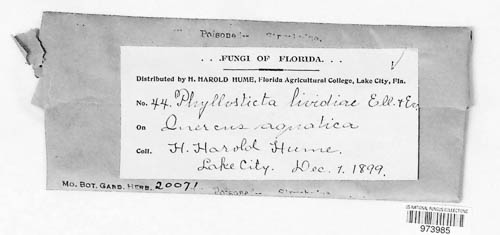 Poisoned
. . . FUNGI OF FLORIDA. . . .
Distributed by H. HAROLD HUME, Florida Agricultural College, Lake City, Fla.
No. 44. Phyllosticta lividiae Ell. & Ev
On Quercus aquatica
Coll. H. Harold Hume.
Lake City. Dec. 1. 1899.
MO. BOT. GARD. HERB. 20071
Poisoned
US NATIONAL FUNGUS COLLECTIONS
973985